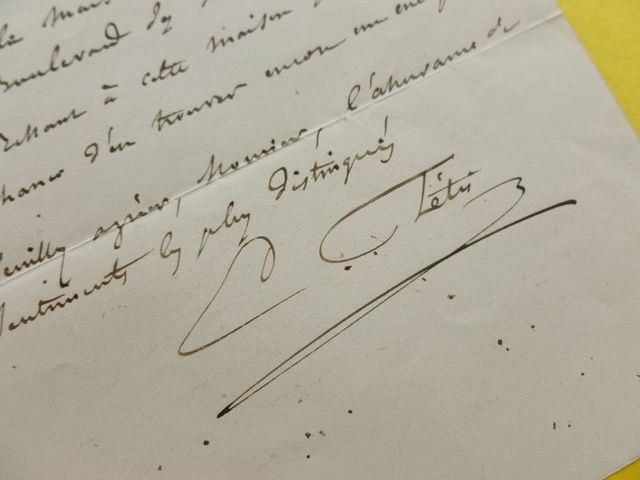 le mais
Boulevard des
restant à cette maison
chance d'en trouver encore un
Veuillez agréer, Monsieur, l'assurance de
sentiments les plus distingués
Fétis